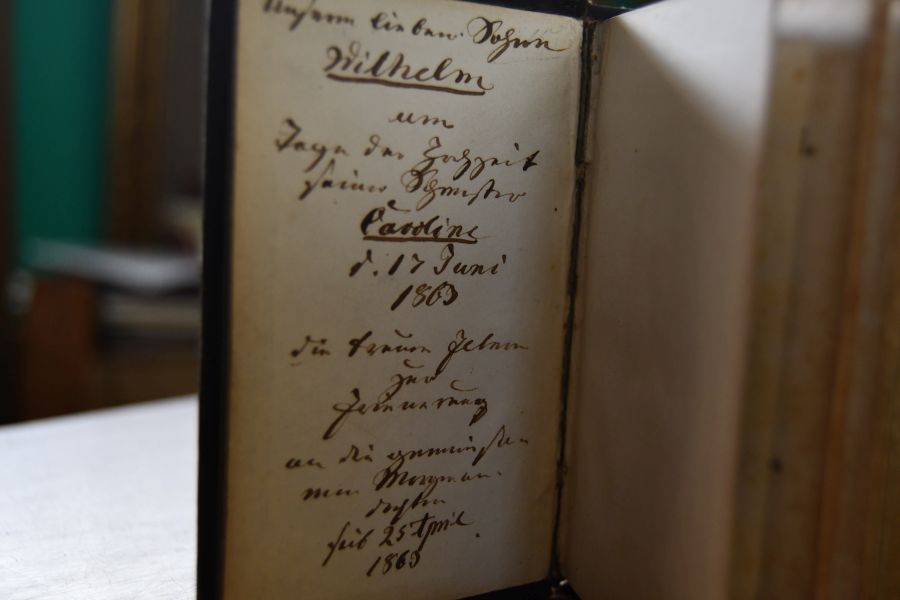 Unserm lieben Sohne
Wilhelm
am
Tage der Hochzeit
seiner Schwester
Caroline
d. 17 Juni
1863
die treuen Eltern
zur
Erinnerung
an die gemeinsa-
men Morgenan-
dachten
seit 25 April
1863